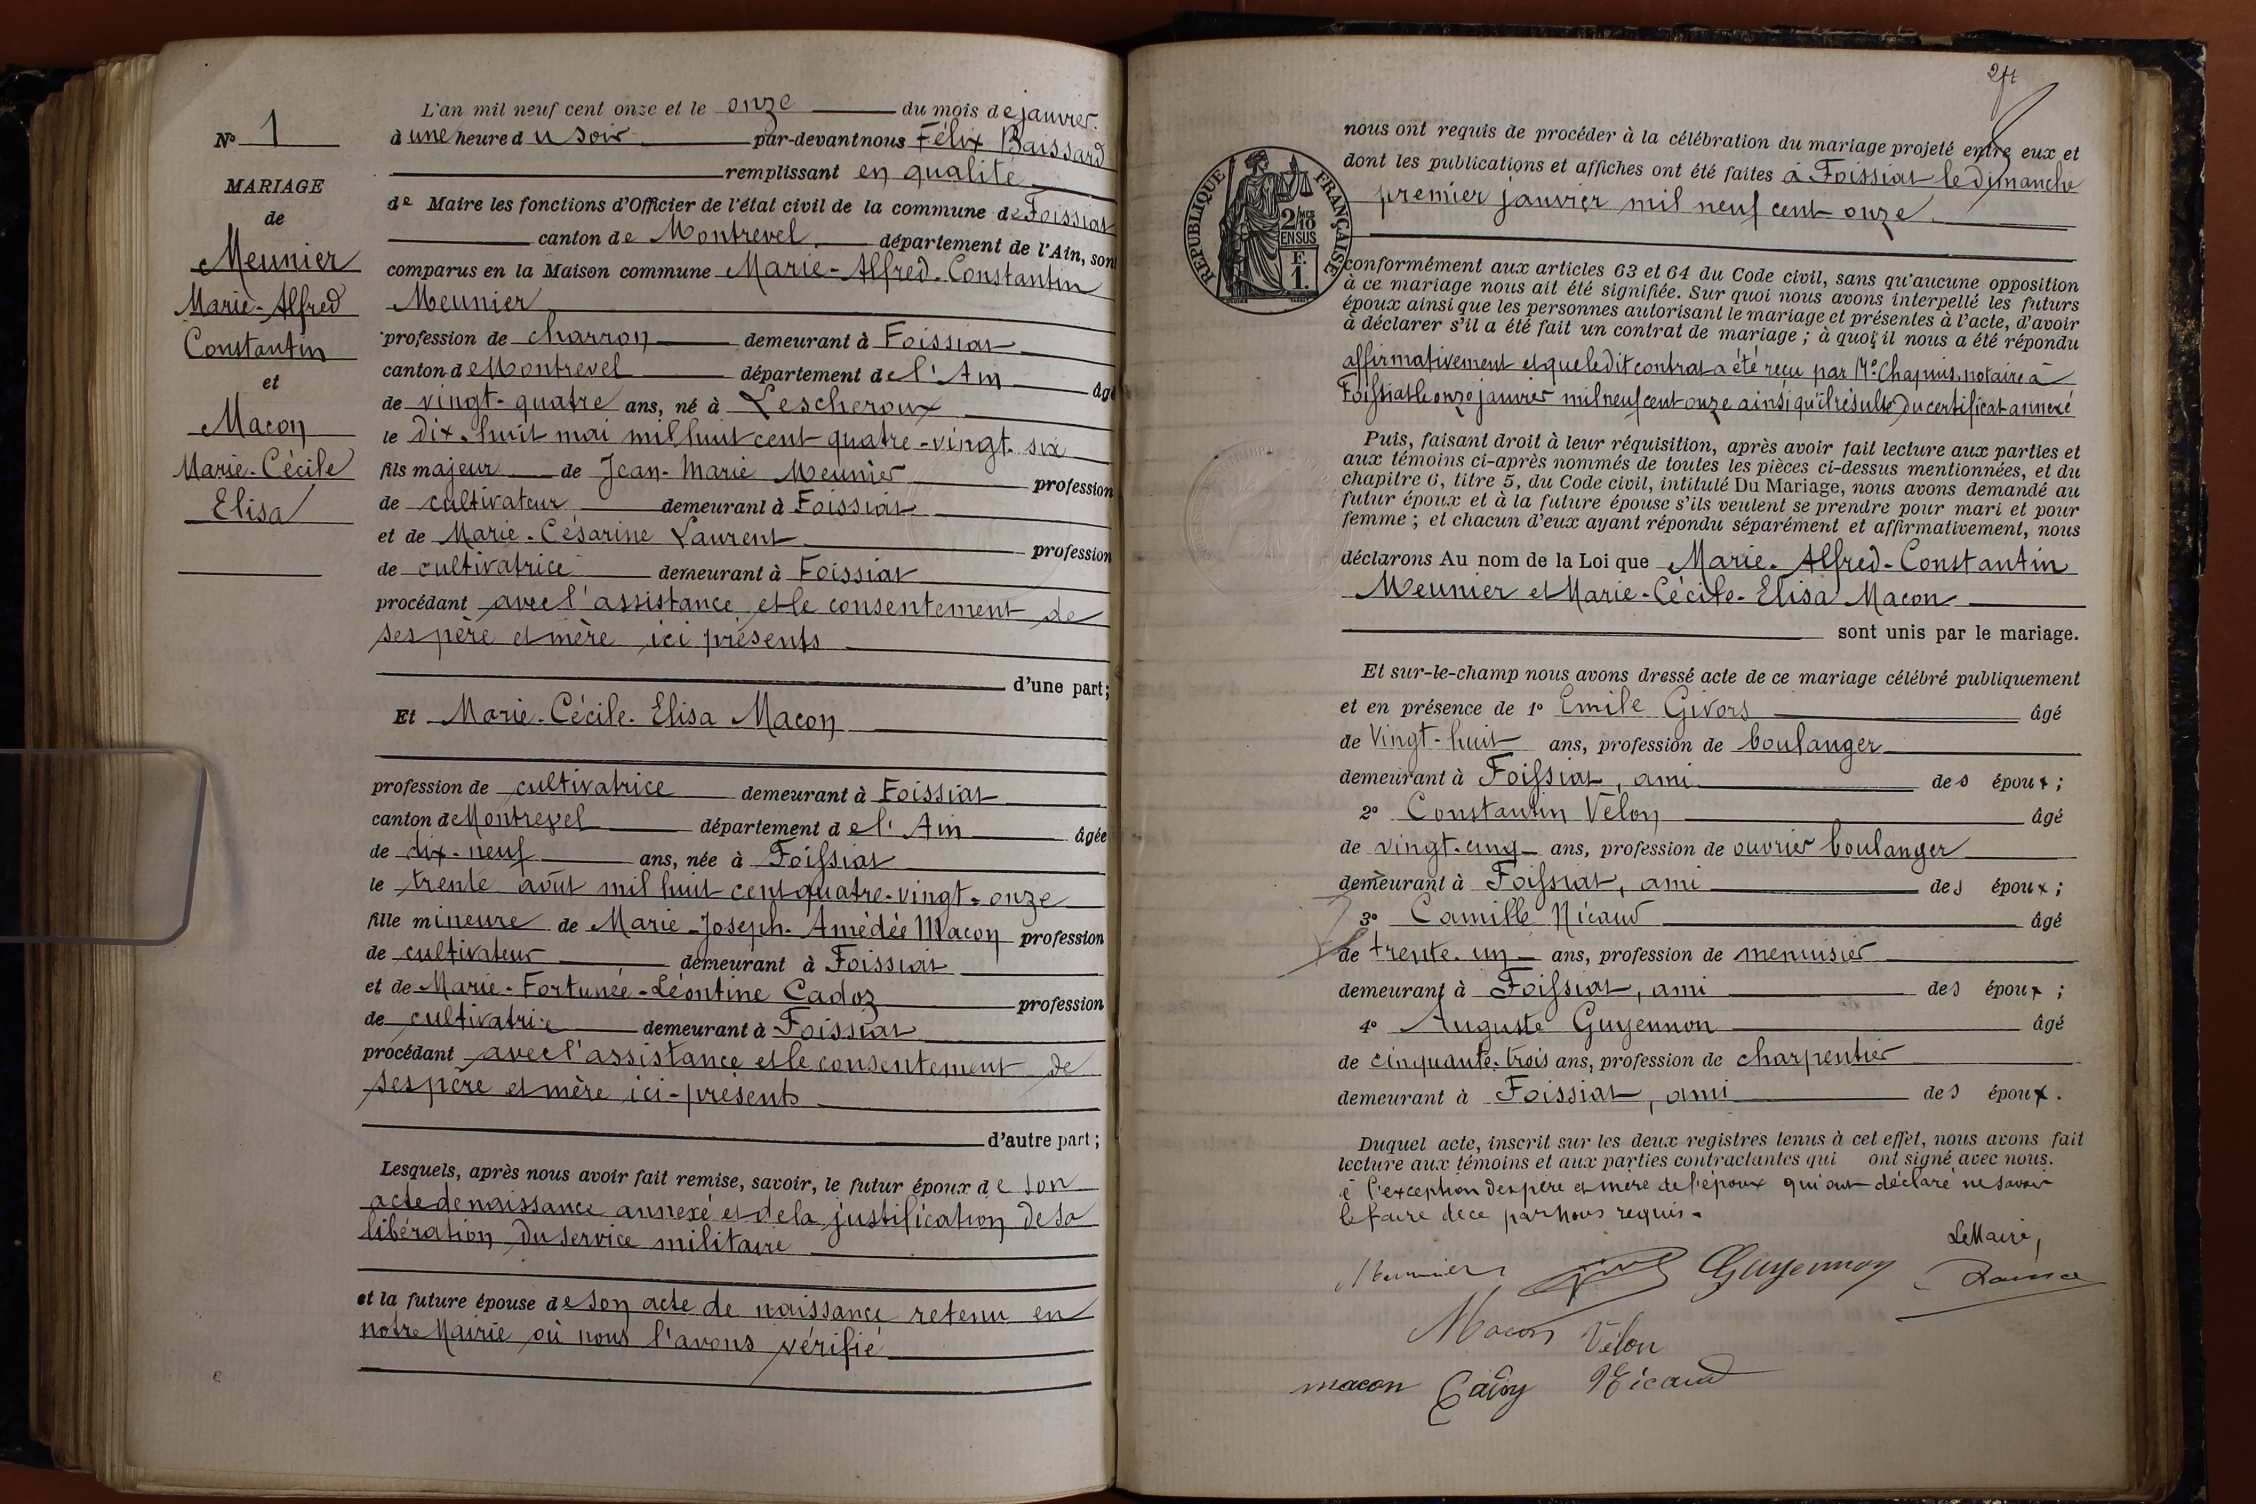 N° 1
MARIAGE
de
Meunier
Marie-Alfred
Constantin
et
Macon
Marie-Cécile
Elisa
L'an mil neuf cent onze et le onze du mois de janvier.
à une heure du soir par-devant nous Félix Baissard
remplissant en qualité
de Maire les fonctions d'Officier de l'état civil de la commune de Foissiat
canton de Montrevel département de l'Ain, sont
comparus en la Maison commune Marie-Alfred-Constantin
Meunier
profession de charron demeurant à Foissiat
canton de Montrevel département de l'Ain âgé
de vingt-quatre ans, né à Lescheroux
le dix-huit mai mil huit cent quatre-vingt-six
fils majeur de Jean-Marie Meunier profession
de cultivateur demeurant à Foissiat
et de Marie-Césarine Laurent profession
de cultivatrice demeurant à Foissiat
procédant avec l'assistance et le consentement de
ses père et mère ici présents
d'une part;
Et Marie-Cécile-Elisa Macon
profession de cultivatrice demeurant à Foissiat
canton de Montrevel département de l'Ain âgée
de dix-neuf ans, née à Foissiat
le trente août mil huit cent quatre-vingt-onze
fille mineure de Marie-Joseph-Amédée Macon profession
de cultivateur demeurant à Foissiat
et de Marie-Fortunée-Léontine Cadoz profession
de cultivatrice demeurant à Foissiat
procédant avec l'assistance et le consentement de
ses père et mère ici-présents
d'autre part;
Lesquels, après nous avoir fait remise, savoir, le futur époux de son
acte de naissance annexé et de la justification de sa
libération du service militaire
et la future épouse de son acte de naissance retenu en
notre Mairie où nous l'avons vérifié
nous ont requis de procéder à la célébration du mariage projeté entre eux et
dont les publications et affiches ont été faites à Foissiat le dimanche
premier janvier mil neuf cent onze
RÉPUBLIQUE FRANÇAISE
2/10 MES
EN SUS
F.
1.
conformément aux articles 63 et 64 du Code civil, sans qu'aucune opposition
à ce mariage nous ait été signifiée. Sur quoi nous avons interpellé les futurs
époux ainsi que les personnes autorisant le mariage et présentes à l'acte, d'avoir
à déclarer s'il a été fait un contrat de mariage; à quoi il nous a été répondu
affirmativement et que ledit contrat a été reçu par Me Chapuis, notaire à
Foissiat le onze janvier mil neuf cent onze ainsi qu'il résulte du certificat annexé
Puis, faisant droit à leur réquisition, après avoir fait lecture aux parties et
aux témoins ci-après nommés de toutes les pièces ci-dessus mentionnées, et du
chapitre 6, titre 5, du Code civil, intitulé Du Mariage, nous avons demandé au
futur époux et à la future épouse s'ils veulent se prendre pour mari et pour
femme; et chacun d'eux ayant répondu séparément et affirmativement, nous
déclarons Au nom de la Loi que Marie-Alfred-Constantin
Meunier et Marie-Cécile-Elisa Macon
sont unis par le mariage.
Et sur-le-champ nous avons dressé acte de ce mariage célébré publiquement
et en présence de 1° Emile Givors âgé
de vingt-huit ans, profession de boulanger
demeurant à Foissiat, ami des époux;
2° Constantin Vélon âgé
de vingt-cinq ans, profession de ouvrier boulanger
demeurant à Foissiat, ami des époux;
3° Camille Nicaud âgé
de trente-un ans, profession de menuisier
demeurant à Foissiat, ami des époux;
4° Auguste Guyennon âgé
de cinquante-trois ans, profession de charpentier
demeurant à Foissiat, ami des époux.
Duquel acte, inscrit sur les deux registres tenus à cet effet, nous avons fait
lecture aux témoins et aux parties contractantes qui ont signé avec nous.
à l'exception des père et mère de l'époux qui ont déclaré ne savoir
le faire de ce par nous requis.
Le Maire,
Meunier Guyennon
Macon Vélon
macon Cadoz Nicaud